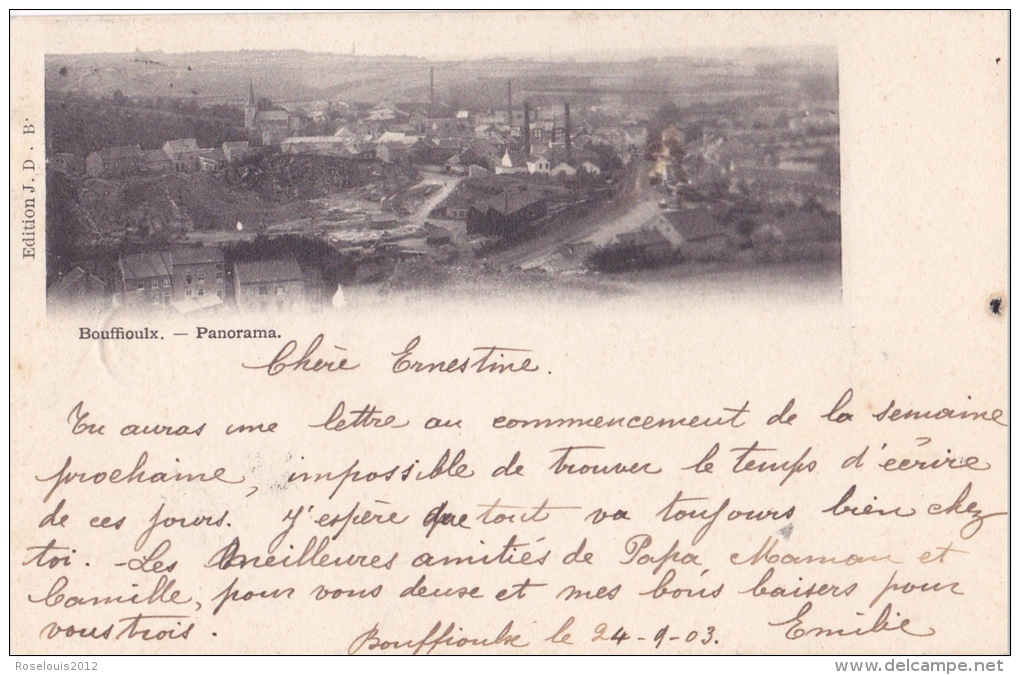 Edition J. D. B.
Bouffioulx. — Panorama.
Chère Ernestine.
Tu auras une lettre au commencement de la semaine
prochaine, impossible de trouver le temps d'écrire
de ces jours. J'espère que tout va toujours bien chez
toi. - Les meilleures amitiés de Papa, Maman et
Camille, pour vous deux et mes bons baisers pour
vous trois.
Bouffioulx le 24-9-03. Emilie
Roselouis2012
delcampe.net